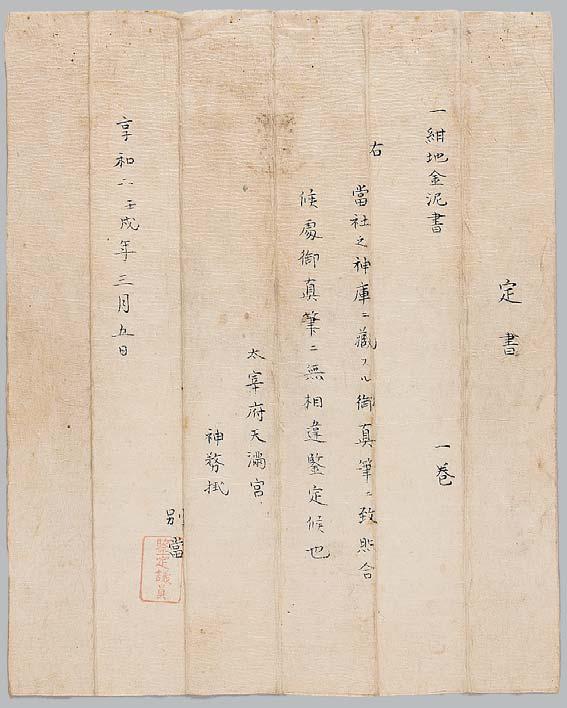 定書
一紺地金泥書 一巻
右
當社之神庫ニ蔵フル御真筆ニ致照合
候處御真筆ニ無相違鑒定候也
太宰府天満宮
神務掛
別當
鑒定議員
享和二壬戌年三月五日